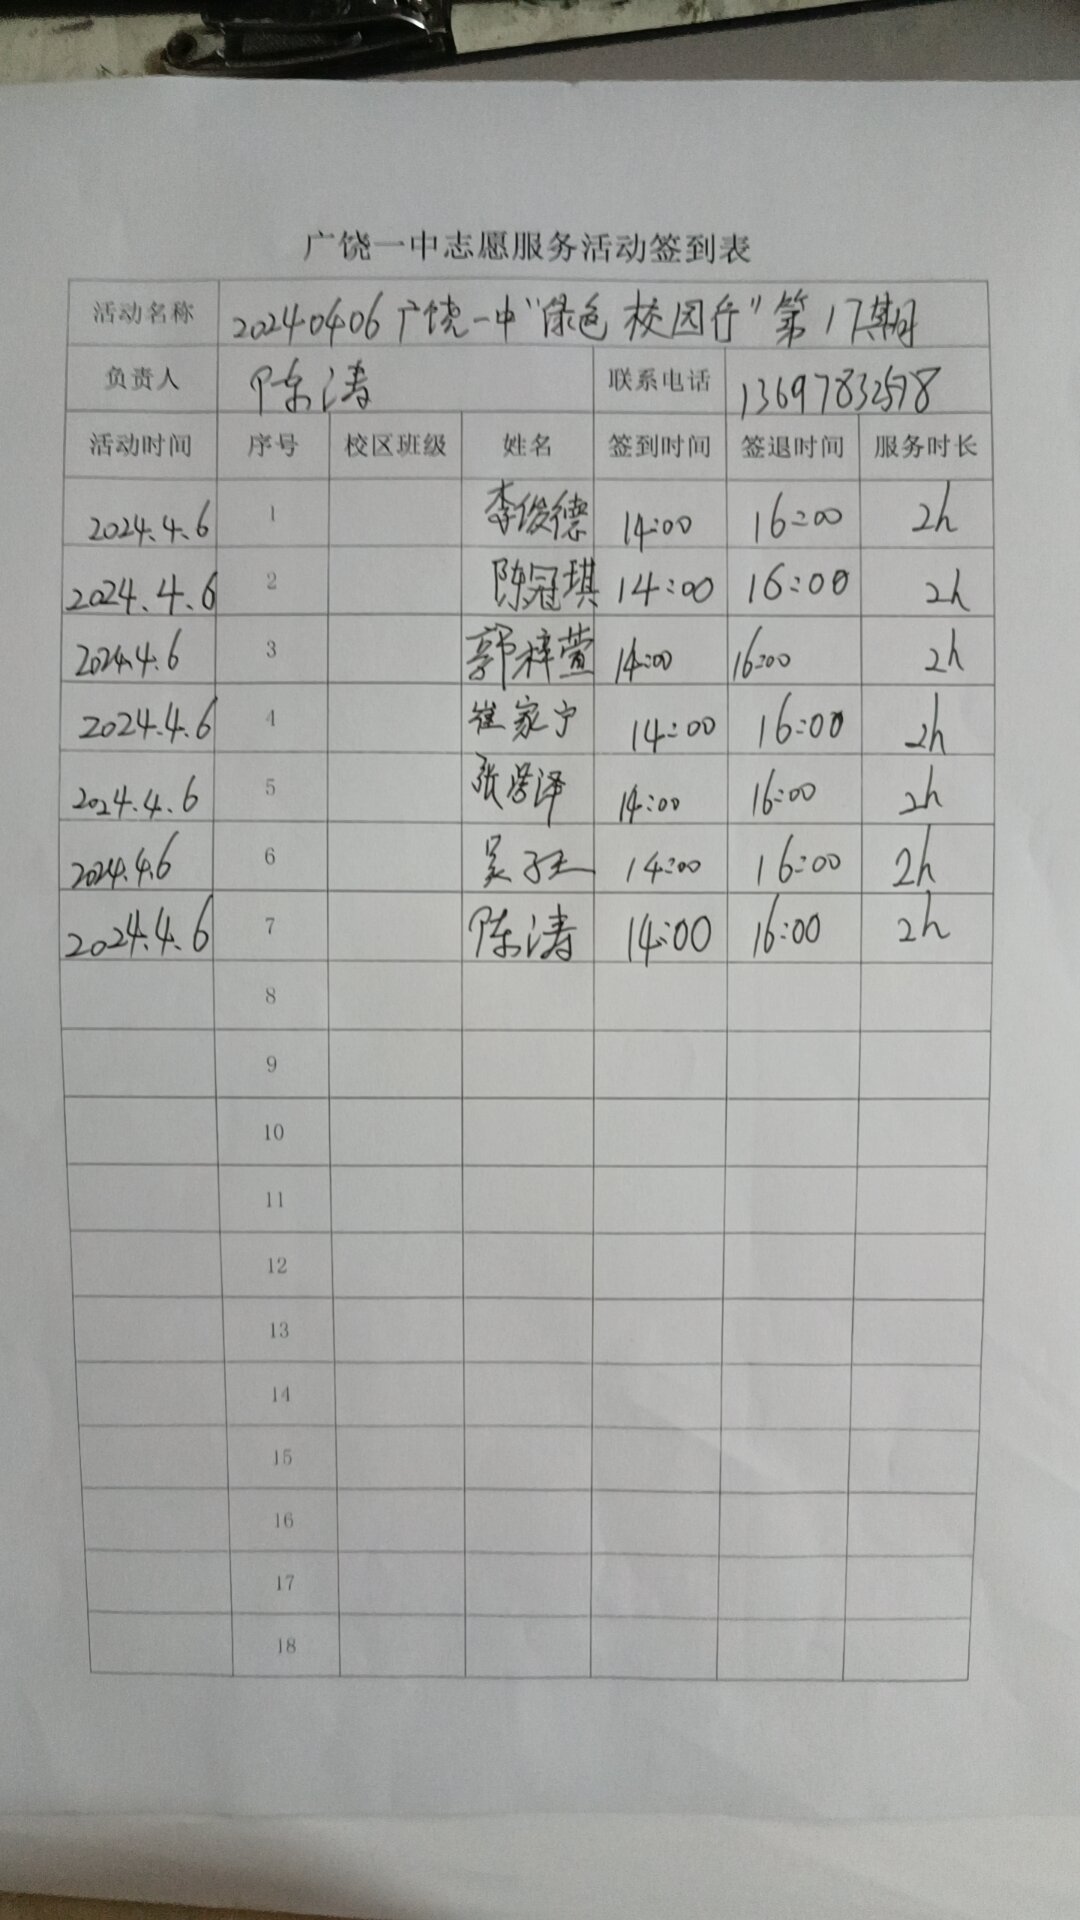 广饶一中志愿服务活动签到表
活动名称 20240406广饶一中“绿色校园行”第17期
负责人 陈涛 联系电话 13697832578
活动时间 序号 校区班级 姓名 签到时间 签退时间 服务时长
2024.4.6 1 李俊德 14:00 16:00 2h
2024.4.6 2 陈冠琪 14:00 16:00 2h
2024.4.6 3 郭梓萱 14:00 16:00 2h
2024.4.6 4 崔家宁 14:00 16:00 2h
2024.4.6 5 张 泽 14:00 16:00 2h
2024.4.6 6 吴 14:00 16:00 2h
2024.4.6 7 陈涛 14:00 16:00 2h
8
9
10
11
12
13
14
15
16
17
18